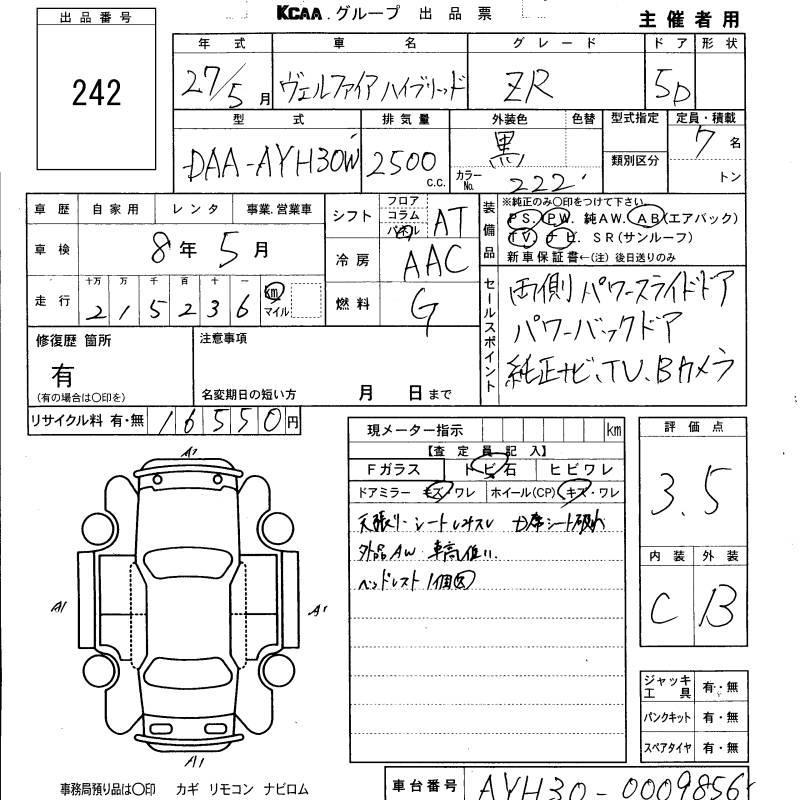 KCAA.グループ 出品票
主催者用
出品番号
242
年式 車名 グレード ドア 形状
27/5月 ヴェルファイアハイブリッド ZR 5D
型式 排気量 外装色 色替 型式指定 定員・積載
DAA-AYH30W 2500 c.c. 黒 カラーNo. 222 類別区分 7名 トン
車歴 自家用 レンタ 事業.営業車
車検 8年5月
走行 十万 万 千 百 十 一
2 1 5 2 3 6 km マイル
シフト フロア コラム パネル AT
冷房 AAC
燃料 G
装備品
※純正のみ〇印をつけて下さい
PS. PW. 純AW. AB(エアバック)
TV. ナビ. SR(サンルーフ)
新車保証書←(注)後日送りのみ
セールスポイント
両側パワースライドドア
パワーバックドア
純正ナビ、TV、Bカメラ
修復歴 箇所
有
(有の場合は〇印を)
注意事項
名変期日の短い方 月 日まで
リサイクル料 有・無 16550円
現メーター指示 km
【査定員記入】
Fガラス トビ石 ヒビワレ
ドアミラー キズ・ワレ ホイール(CP) キズ・ワレ
天張り-シート
シート破れ
外品AW 車高低い.
ヘッドレスト 1個欠
評価点
3.5
内装 外装
C B
ジャッキ工具 有・無
パンクキット 有・無
スペアタイヤ 有・無
A1
A1
A1
A1
事務局預り品は〇印 カギ リモコン ナビロム
車台番号 AYH30-0009856